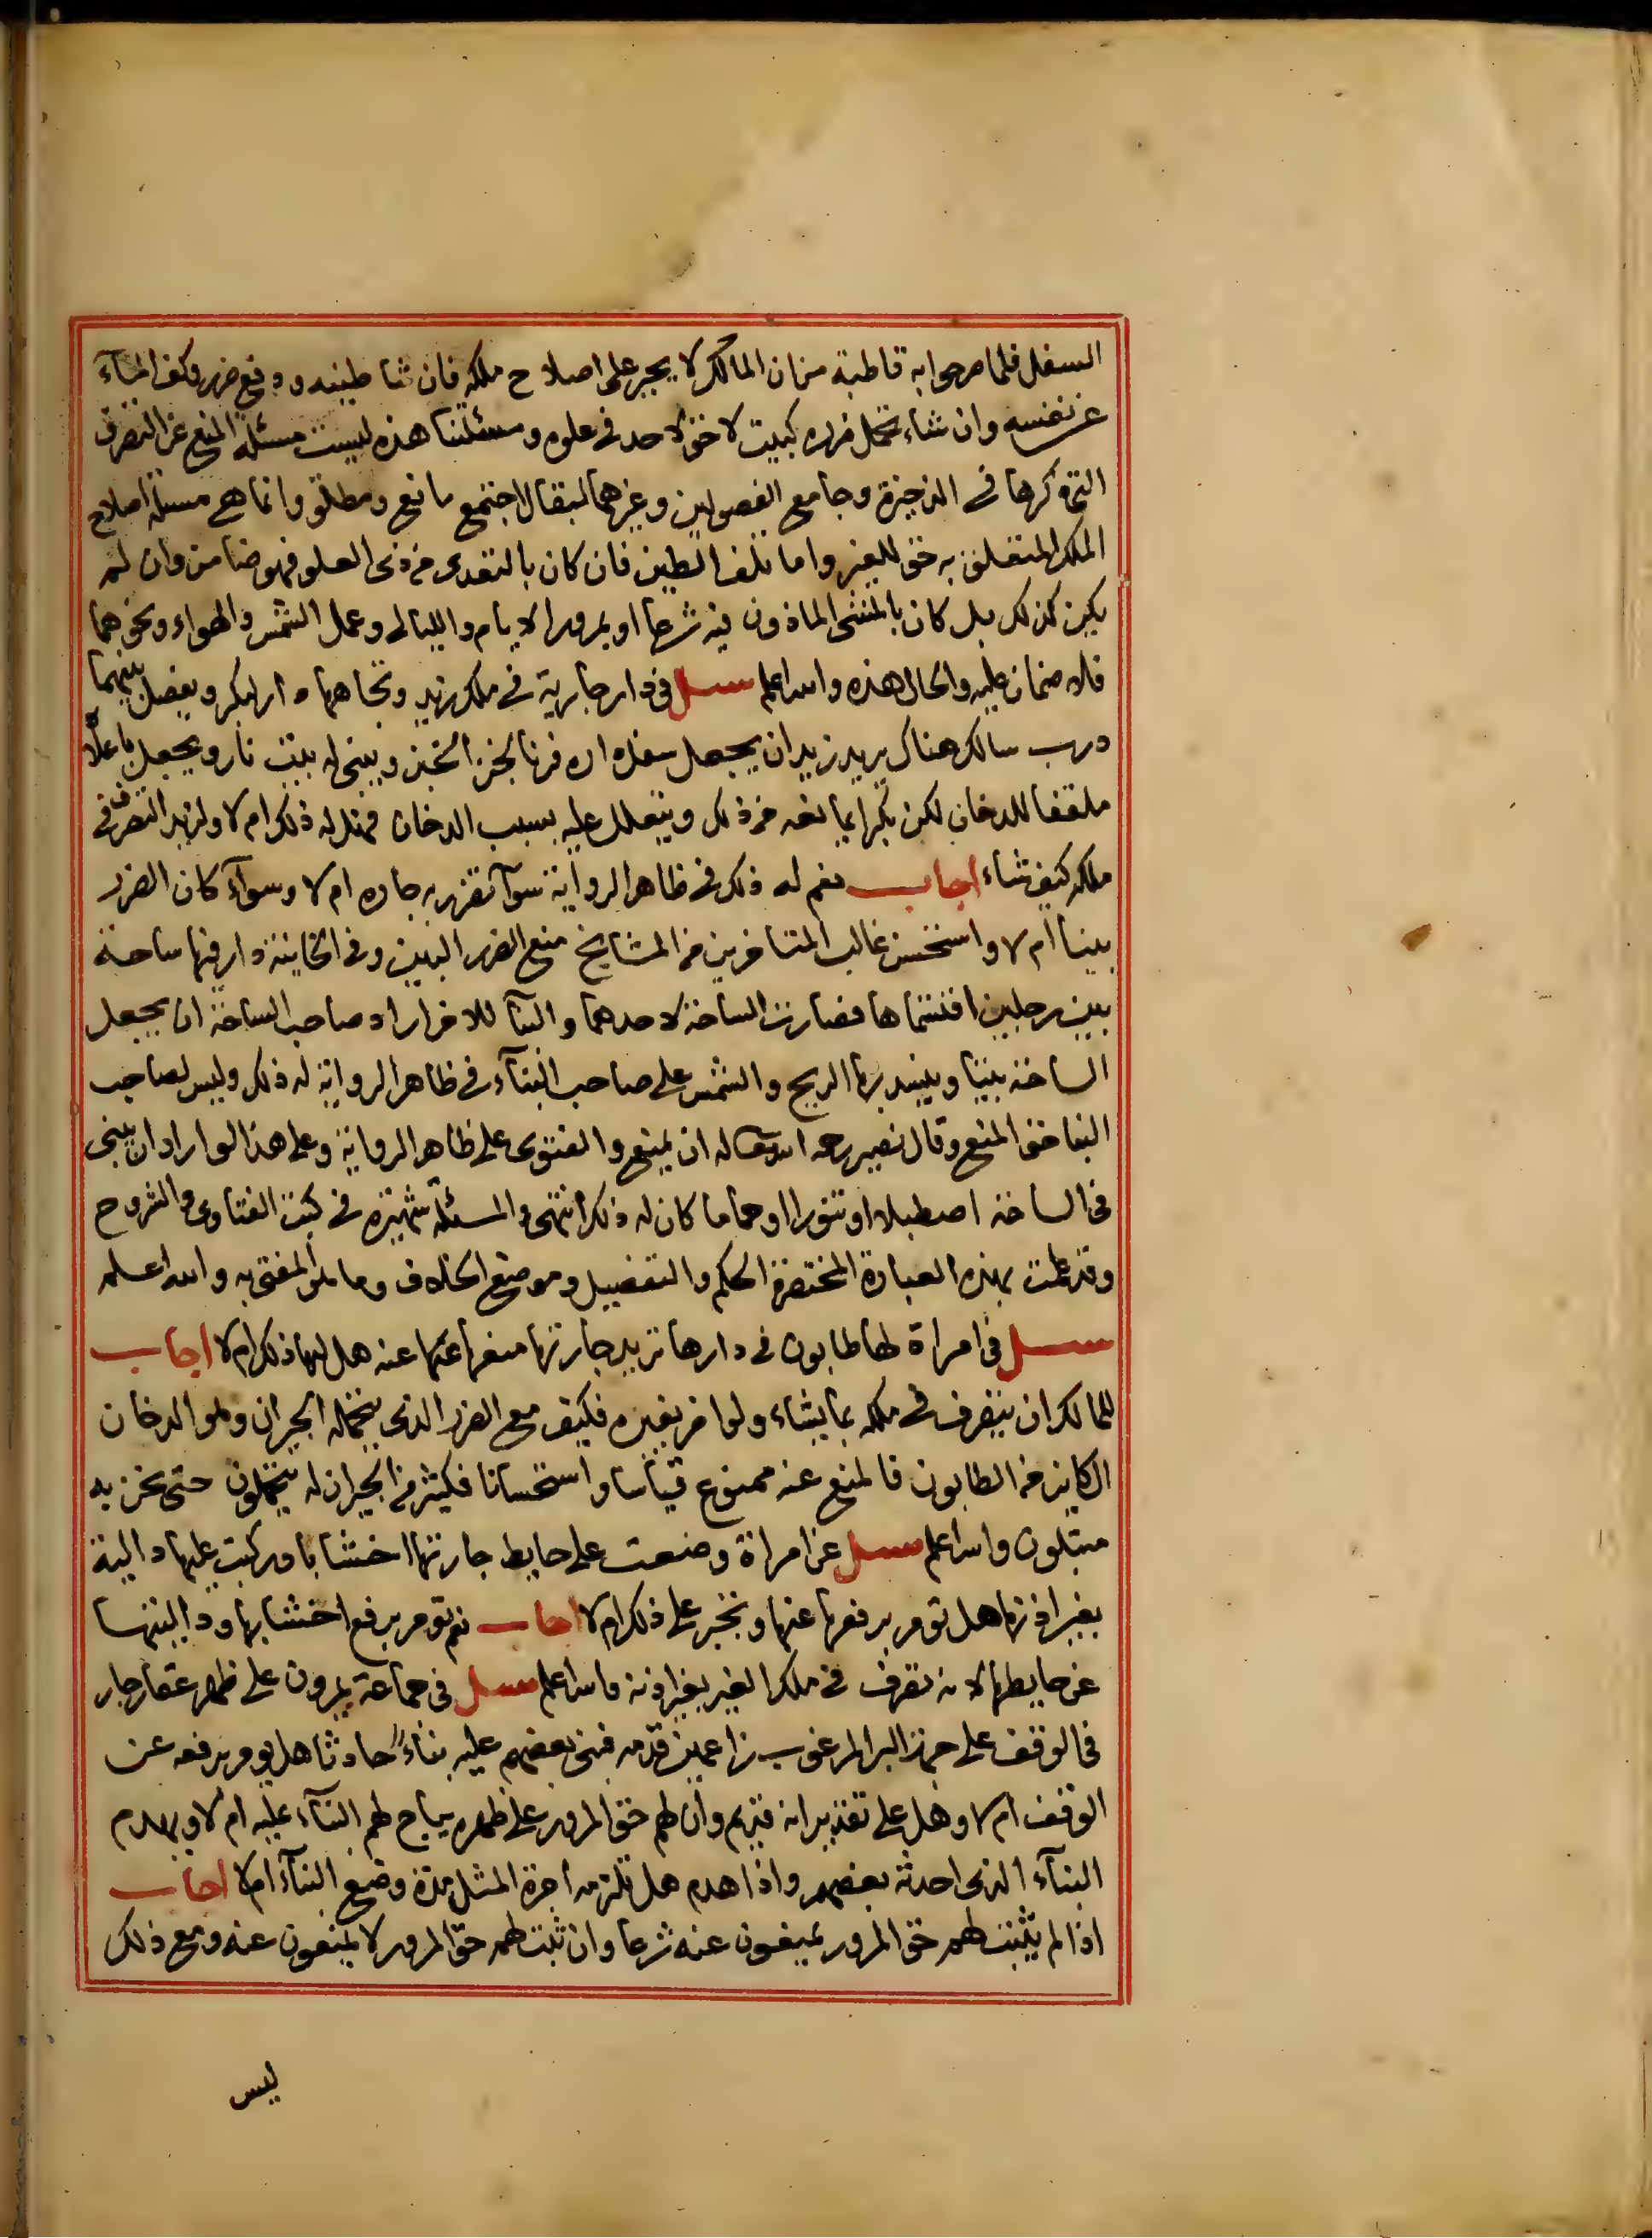 السفل فلما صرحوا به قاطبة من ان المالك لا يجبر على اصلاح ملكه فان شا طينه ودفع ضرر وكف الماء
عن نفسه وان شاء تحمل ضرره كبيت لا حق لاحد في علوه ومسئلتنا هذه ليست مسئلة المنع عن التصرف
التي ذكرها في الذخيرة وجامع الفصولين وغيرهما ليقال اجتمع مانع ومطلق وانما هي مسئلة اصلاح
الملك المتعلق به حق للغير واما تلف الطين فان كان بالتعدى من ذى العلو فهو ضامن وان لم
يكن كذلك بل كان بالمشى الماذون فيه شرعا او بمرور الايام والليالى وعمل الشمس والهواء ونحوهما
فلا ضمان عليه والحال هذه والله اعلم سئل في دار جارية في ملك زيد وتجاهها دار لبكر ويفصل بينهما
درب سالك هناك يريد زيد ان يجعل سفل داره فرنا لخبز الخبز ويبنى له بيت نار ويجعل باعلاه
ملقفا للدخان لكن بكرا يمانعه من ذلك ويتعلل عليه بسبب الدخان فهل له ذلك ام لا ولزيد التصرف في
ملكه كيف شاء اجاب نعم له ذلك في ظاهر الرواية سوآ تضرر به جاره ام لا وسوآء كان الضرر
بينا ام لا واستحسن غالب المتاخرين من المشايخ منع الضرر البين وفي الخانية دار فيها ساحة
بين رجلين اقتسماها فصارت الساحة لاحدهما والبنا للاخر اراد صاحب الساحة ان يجعل
الساحة بيتا ويسد بها الريح والشمس على صاحب البنآء في ظاهر الرواية له ذلك وليس لصاحب
البنا حق المنع وقال نصير رحمه الله تعالى له ان يمنع والفتوى على ظاهر الرواية وعلى هذا لو اراد ان يبنى
في الساحة اصطبلا او تنورا او حماما كان له ذلك انتهى والمسئلة شهيرة في كتب الفتاوى والشروح
وقد علمت بهذه العبارة المختصرة الحكم والتفصيل وموضع الخلاف وما هو المفتى به والله اعلم
سئل في امراة لها طابون في دارها تريد جارتها منعها عنه هل لها ذلك ام لا اجاب
للمالك ان يتصرف في ملكه بما يشاء ولو اضر بغيره فكيف مع الضرر الذى يتحمله الجيران وهو الدخان
الكاين من الطابون فالمنع عنه ممنوع قياسا واستحسانا فكثير من الجيران له يتحملون حتى نحن به
مبتلون والله اعلم سئل عن امراة وضعت على حايط جارتها اخشابا وركبت عليها دالية
بغير اذنها هل تومر برفعها عنها وتجبر على ذلك ام لا اجاب نعم تومر برفع اخشابها ودالیتها
عن حايطها لانه تصرف في ملك الغير بغير اذنه والله اعلم سئل في جماعة يمرون على ظهر عقار جار
في الوقف على البر المرغوب زاعمين قدمه فبنى بعضهم عليه بناءً حادثا هل يومر برفعه عن
الوقف ام لا وهل على تقدير انه قديم وان لهم حق المرور على ظهره يباح لهم البنآء عليه ام لا ويهدم
البنآء الذى احدثه بعضهم واذا هدم هل تلزمه اجرة المثل مدة وضع البنآء ام لا اجاب
اذا لم يثبت لهم حق المرور يمنعون عنه شرعا وان ثبت لهم حق المرور لا يمنعون عنه ومع ذلك
ليس